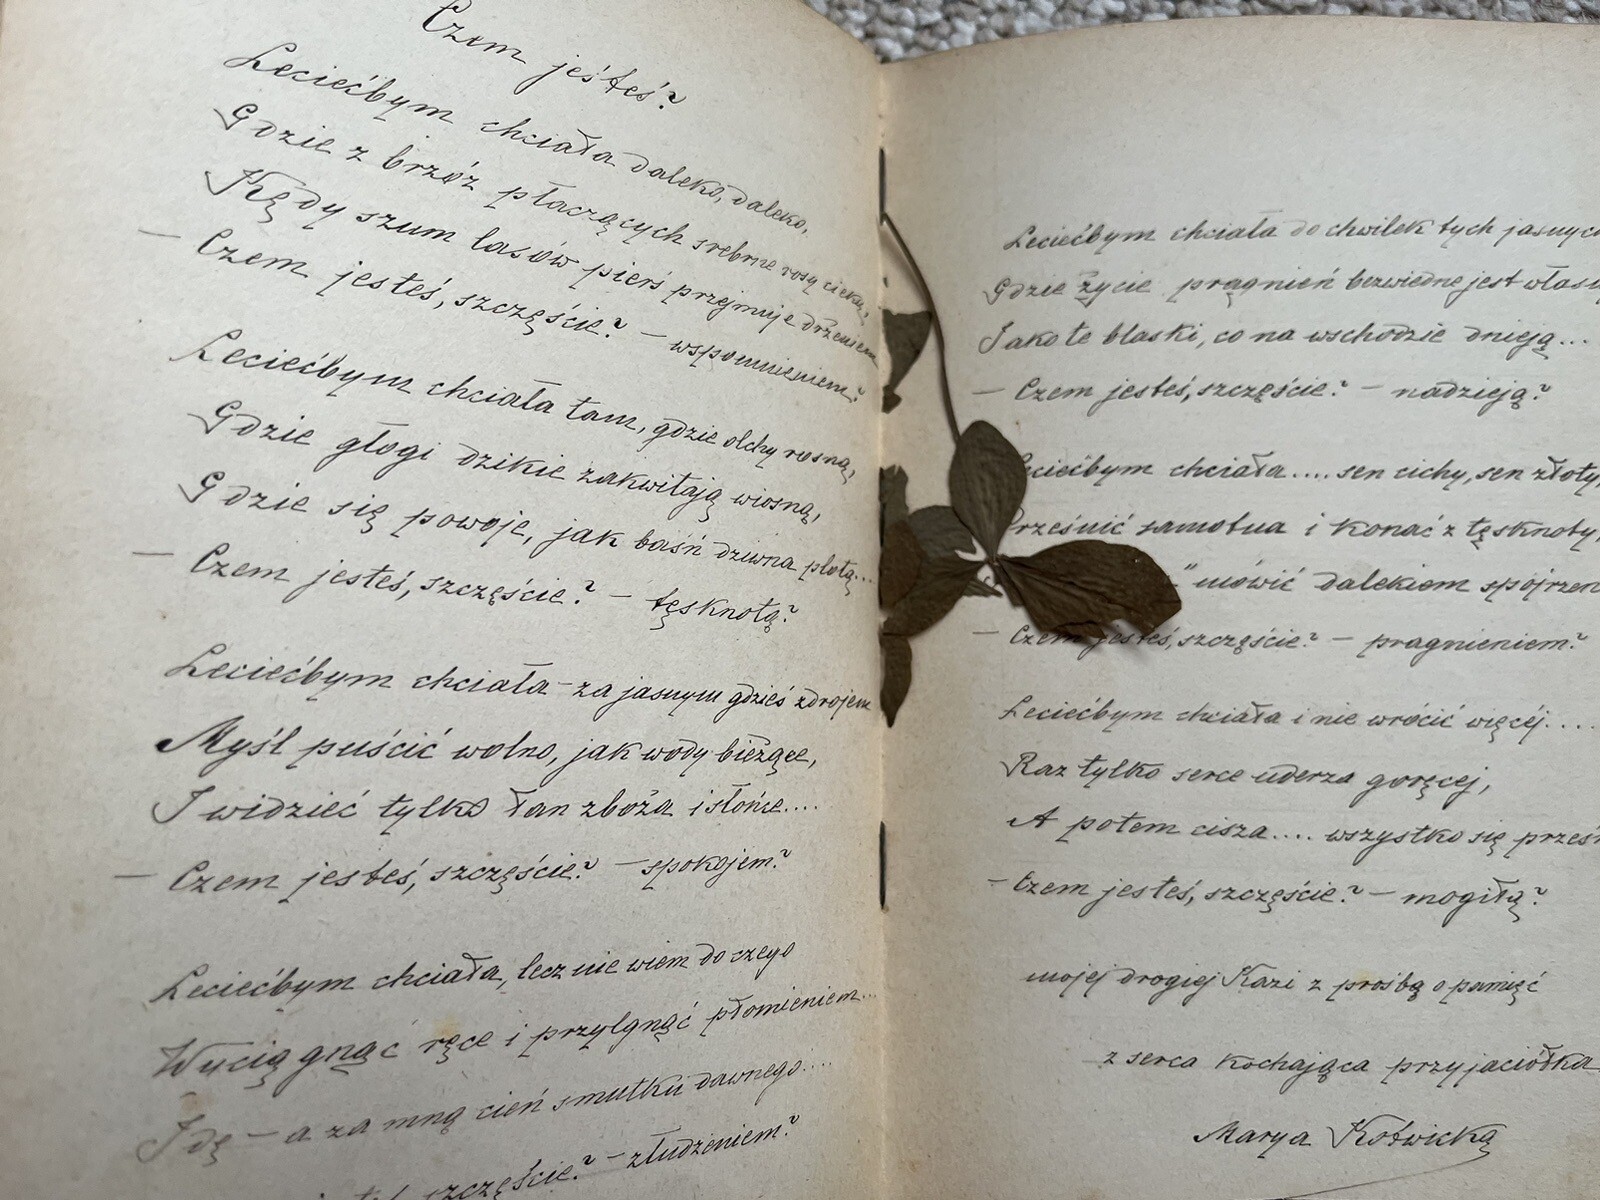 Czem jesteś?
Leciećbym chciała daleko, daleko,
Gdzie z brzóz płaczących srebrne rosy cieką,
Kędy szum lasów pierś przejmuje drżeniem
— Czem jesteś, szczęście? — wspomnieniem?
Leciećbym chciała tam, gdzie olchy rosną,
Gdzie głogi dzikie zakwitają wiosną,
Gdzie się powoje, jak baśń dziwna plotą...
— Czem jesteś, szczęście? — tęsknotą?
Leciećbym chciała — za jasnym gdzieś zdrojem
Myśl puścić wolno, jak wody bieżące,
I widzieć tylko łan zboża i słońce....
— Czem jesteś, szczęście? — spokojem?
Leciećbym chciała, lecz nie wiem do czego
Wyciągnąć ręce i przylgnąć płomieniem...
Idę — a za mną cień smutku dawnego....
szczęście? — złudzeniem?
Leciećbym chciała do chwilek tych
Gdzie życie pragnień bezwiedne jest
Jako te blaski, co na wschodzie dnieją...
— Czem jesteś, szczęście? — nadzieją?
chciała.... sen cichy, sen złoty,
samotna i konać z tęsknoty,
mówić dalekiem
— Czem jesteś, szczęście? — pragnieniem?
Leciećbym chciała i nie wrócić więcéj....
Raz tylko serce uderza goręcej,
A potem cisza.... wszystko się
— Czem jesteś, szczęście? — mogiłą?
mojej drogiej Kazi z prośbą o pamięć
z serca kochająca przyjaciółka
Marya Kotwicka